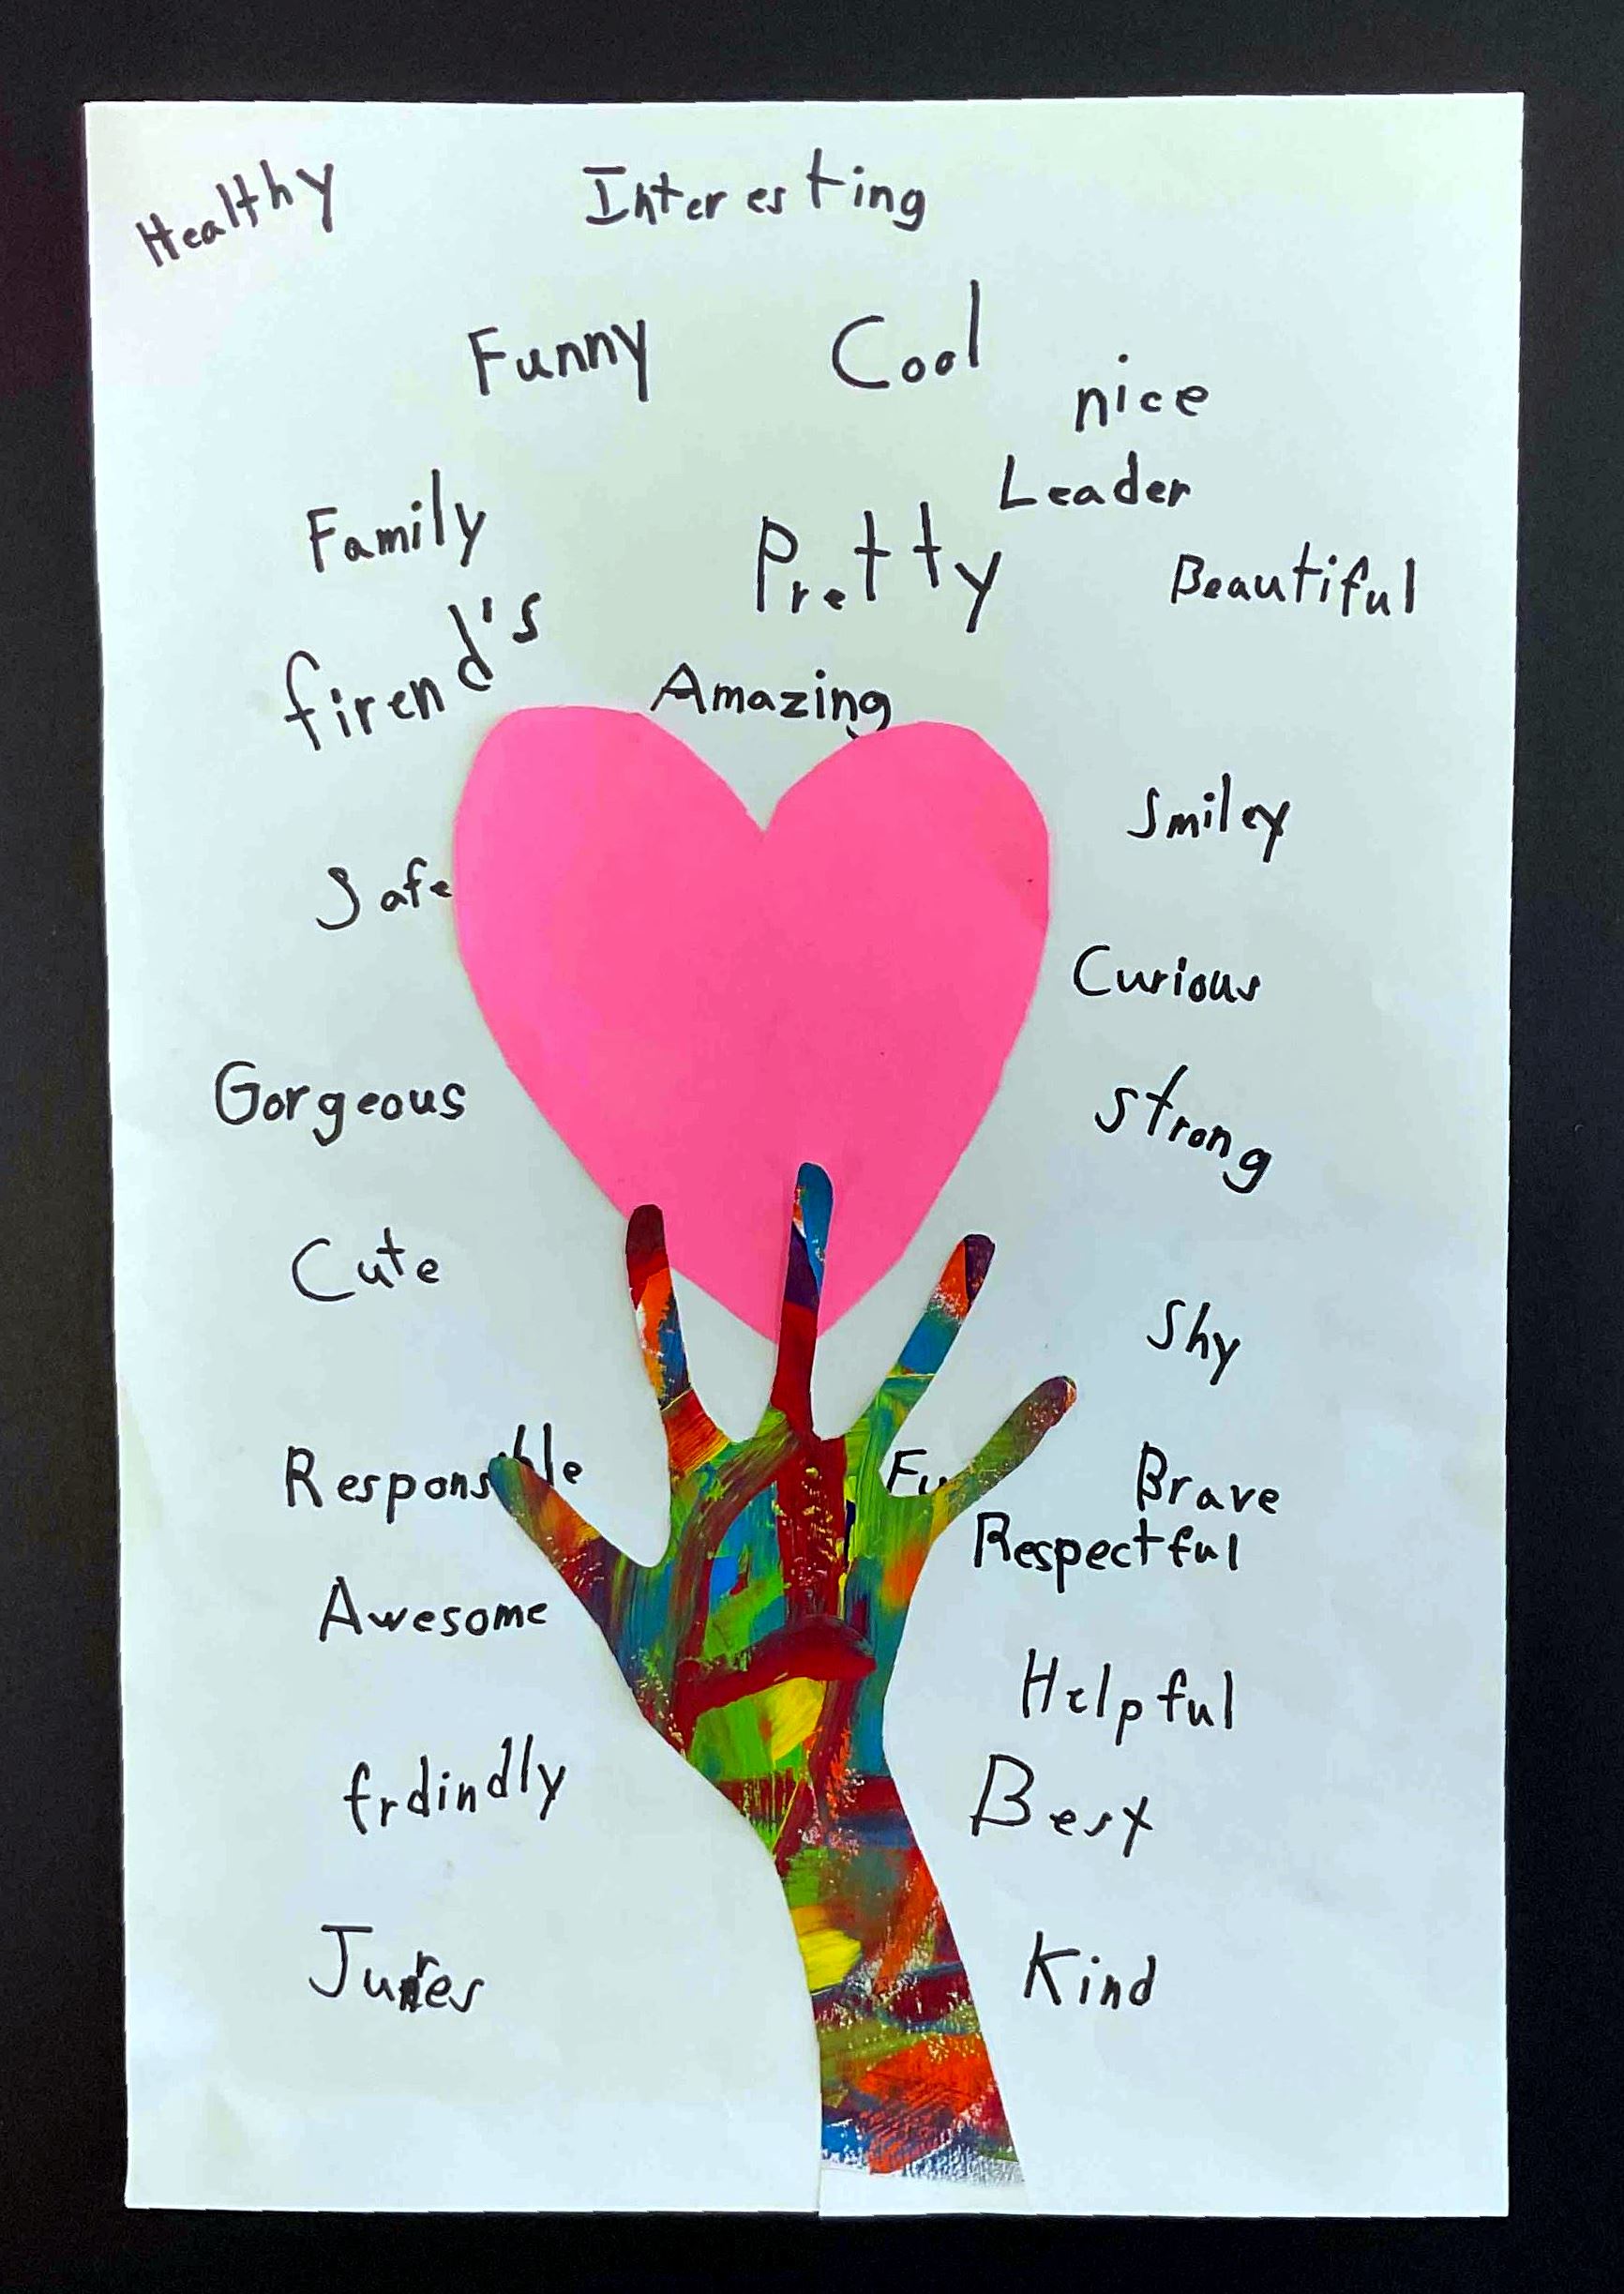 Healthy
Interesting
Funny
Cool
nice
Leader
Family
Pretty
Beautiful
firend's
Amazing
Smiley
Safe
Curious
Gorgeous
Strong
Cute
Shy
Responsible
Fu
Brave
Respectful
Awesome
Helpful
frdindly
Best
Kind